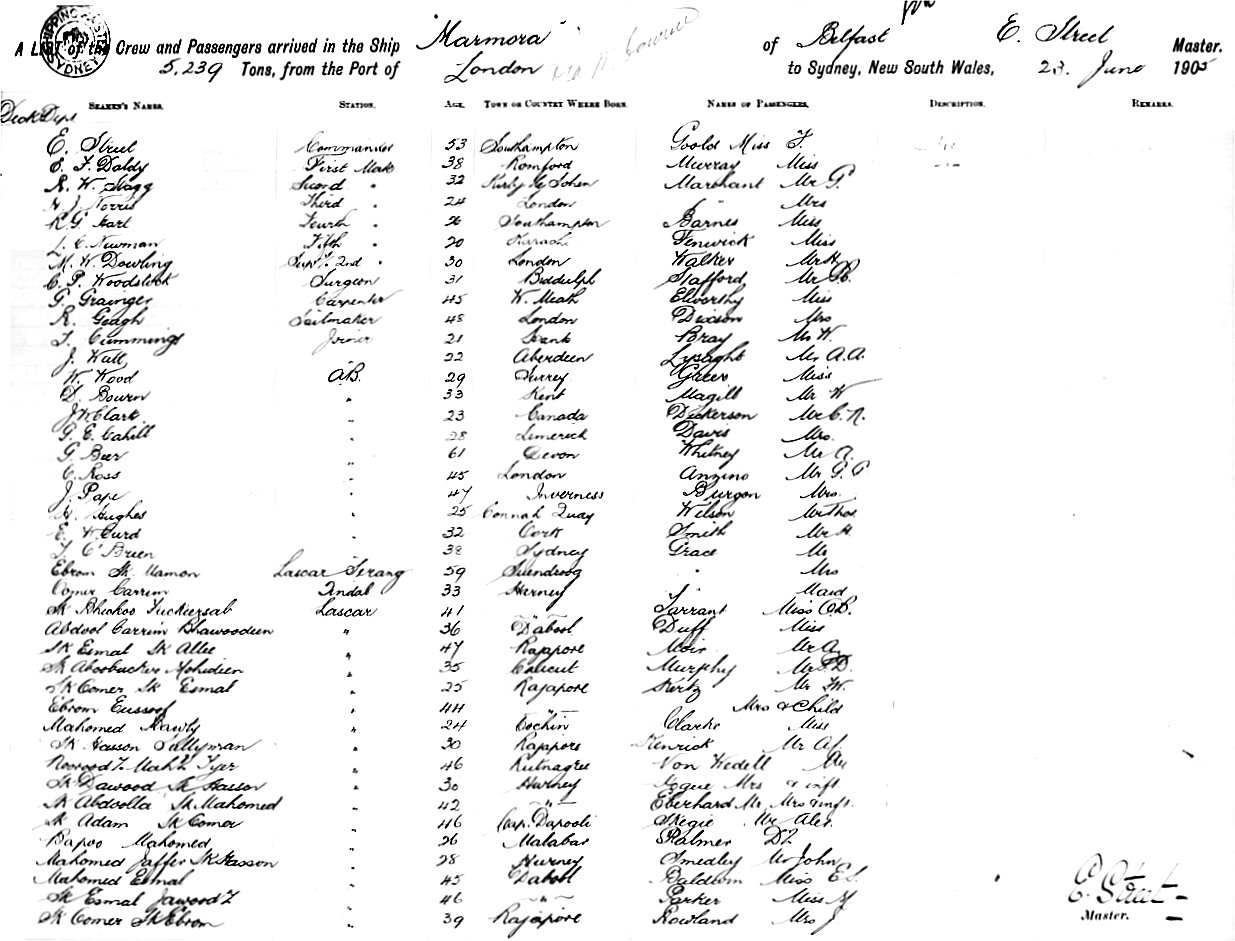 A LIST of the Crew and Passengers arrived in the Ship "Marmora" of Belfast E. Street Master.
5,239 Tons, from the Port of London to Sydney, New South Wales, 23. June 1905
SEAMEN'S NAMES. STATION. AGE. TOWN OR COUNTRY WHERE BORN. NAMES OF PASSENGERS. DESCRIPTION. REMARKS.
Deck Dept
E. Street Commander 53 Southampton Goold Miss F.
E. F. Daldy First Mate 38 Romford Murray Miss
R. W. Stagg Second " 32 Marchant Mr G.
H. J. Norris Third 24 London " Mrs
R. G. Hart Fourth " 26 Southampton Barnes Miss
L. C. Newman Fifth " 20 Karachi Fenwick Miss
M. W. Dowling Supy. 2nd " 30 London Walker Mr H.
C. P. Woodstock Surgeon 31 Biddulph Stafford Mr R.
G. Grainger Carpenter 45 W. Meath Elworthy Miss
R. Geagh Sailmaker 48 London Dixson Mrs
T. Cummings Joiner 21 Bray Mr W.
J. Wall 22 Aberdeen Lysaght Mr A. A.
W. Wood A.B. 29 Surrey Greer Miss
D. Bourn " 33 Kent Magill Mr W
J. W. Clark " 23 Canada Dickerson Mr C. N.
G. E. Cahill " 28 Limerick Davis Mrs.
G. Beer " 61 Devon Whitney Mr A.
C. Ross " 45 London Anzino Mr G. P
J. Pape " 47 Inverness Burgon Mrs.
H. Hughes " 25 Connah Quay Wilson Mr Thos.
E. W. Curd " 32 Cork Smith Mr H
T. O'Brien 38 Sydney Grace Mr
Ebrom Sk. Mamon Lascar Serang 59 " Mrs
Comer Carrim Tindal 33 Hurney " Maid
Sk Bhickoo Fuckiersab Lascar 41 " Tarrant Miss
Abdool Carrim Bhawoodeen " 36 Dabool Duff Miss
Sk Esmal Sk Allee " 47 Rajapore Moir Mr A.
Sk Aboobucker Mohidien " 35 Calicut Murphy Mr P. D.
Sk Comer Sk Esmal " 25 Rajapore Kertz Mr F. W.
Ebrom Eussoof " 44 " Mrs & Child
Mahomed Hawly " 24 Cochin Clarke Miss
Sk Hasson Sullyman " 30 Rajapore Kenrick Mr
46 Rutnagree Von Wedell
Sk Dawood Sk Hasson " 30 Hurney Hogue Mrs & inft.
Sk Abdoolla Sk Mahomed " 42 " Eberhard Mr Mrs & inft.
Sk Adam Sk Comer " 46 Cap. Dapooli Skegie Mr Alex.
Bapoo Mahomed " 26 Malabar Palmer Dr
Mahomed Jaffer Sk Hasson " 28 Hurney Smedley Mr John
Mahomed Esmal " 45 Dabool Baldwin Miss
Sk Esmal " 46 " Parker Miss
Sk Comer Sk Ebrom " 39 Rajapore Rowland Mrs J
E. Street
Master.